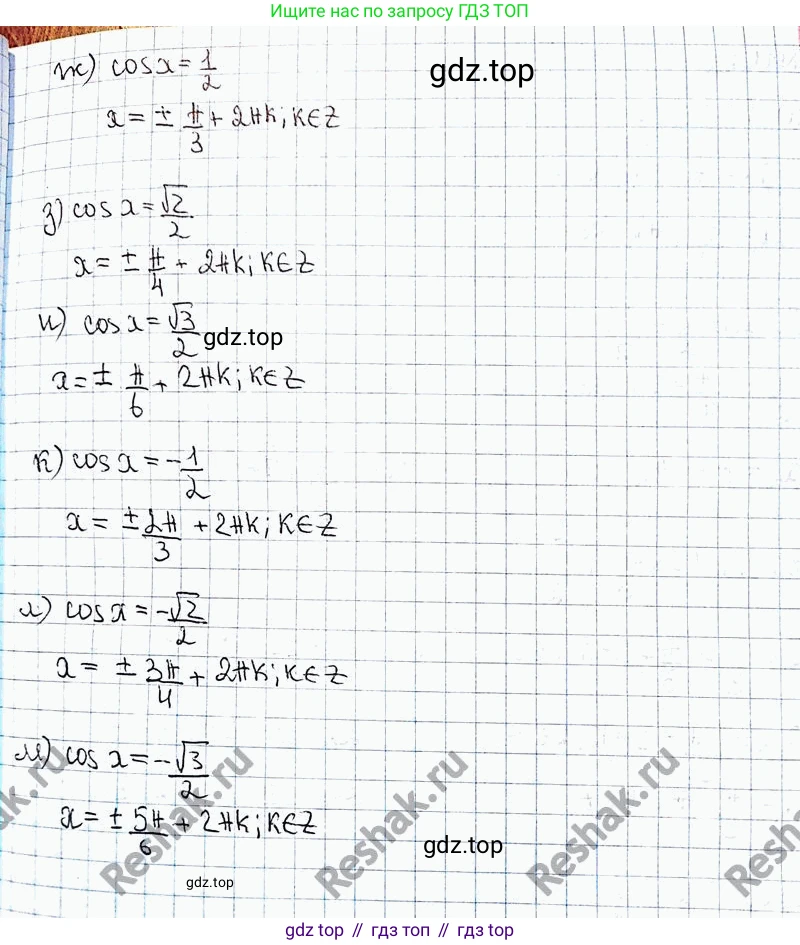 Ищите нас по запросу ГДЗ ТОП
ж) cos x = 1/2
gdz.top
x = ± π/3 + 2πk; k ∈ Z
з) cos x = √2/2
x = ± π/4 + 2πk; k ∈ Z
и) cos x = √3/2
gdz.top
x = ± π/6 + 2πk; k ∈ Z
к) cos x = -1/2
x = ± 2π/3 + 2πk; k ∈ Z
л) cos x = -√2/2
x = ± 3π/4 + 2πk; k ∈ Z
м) cos x = -√3/2
x = ± 5π/6 + 2πk; k ∈ Z
gdz.top
gdz.top
Reshak.ru
Reshak.ru
Reshak.ru
gdz.top // гдз топ // гдз top